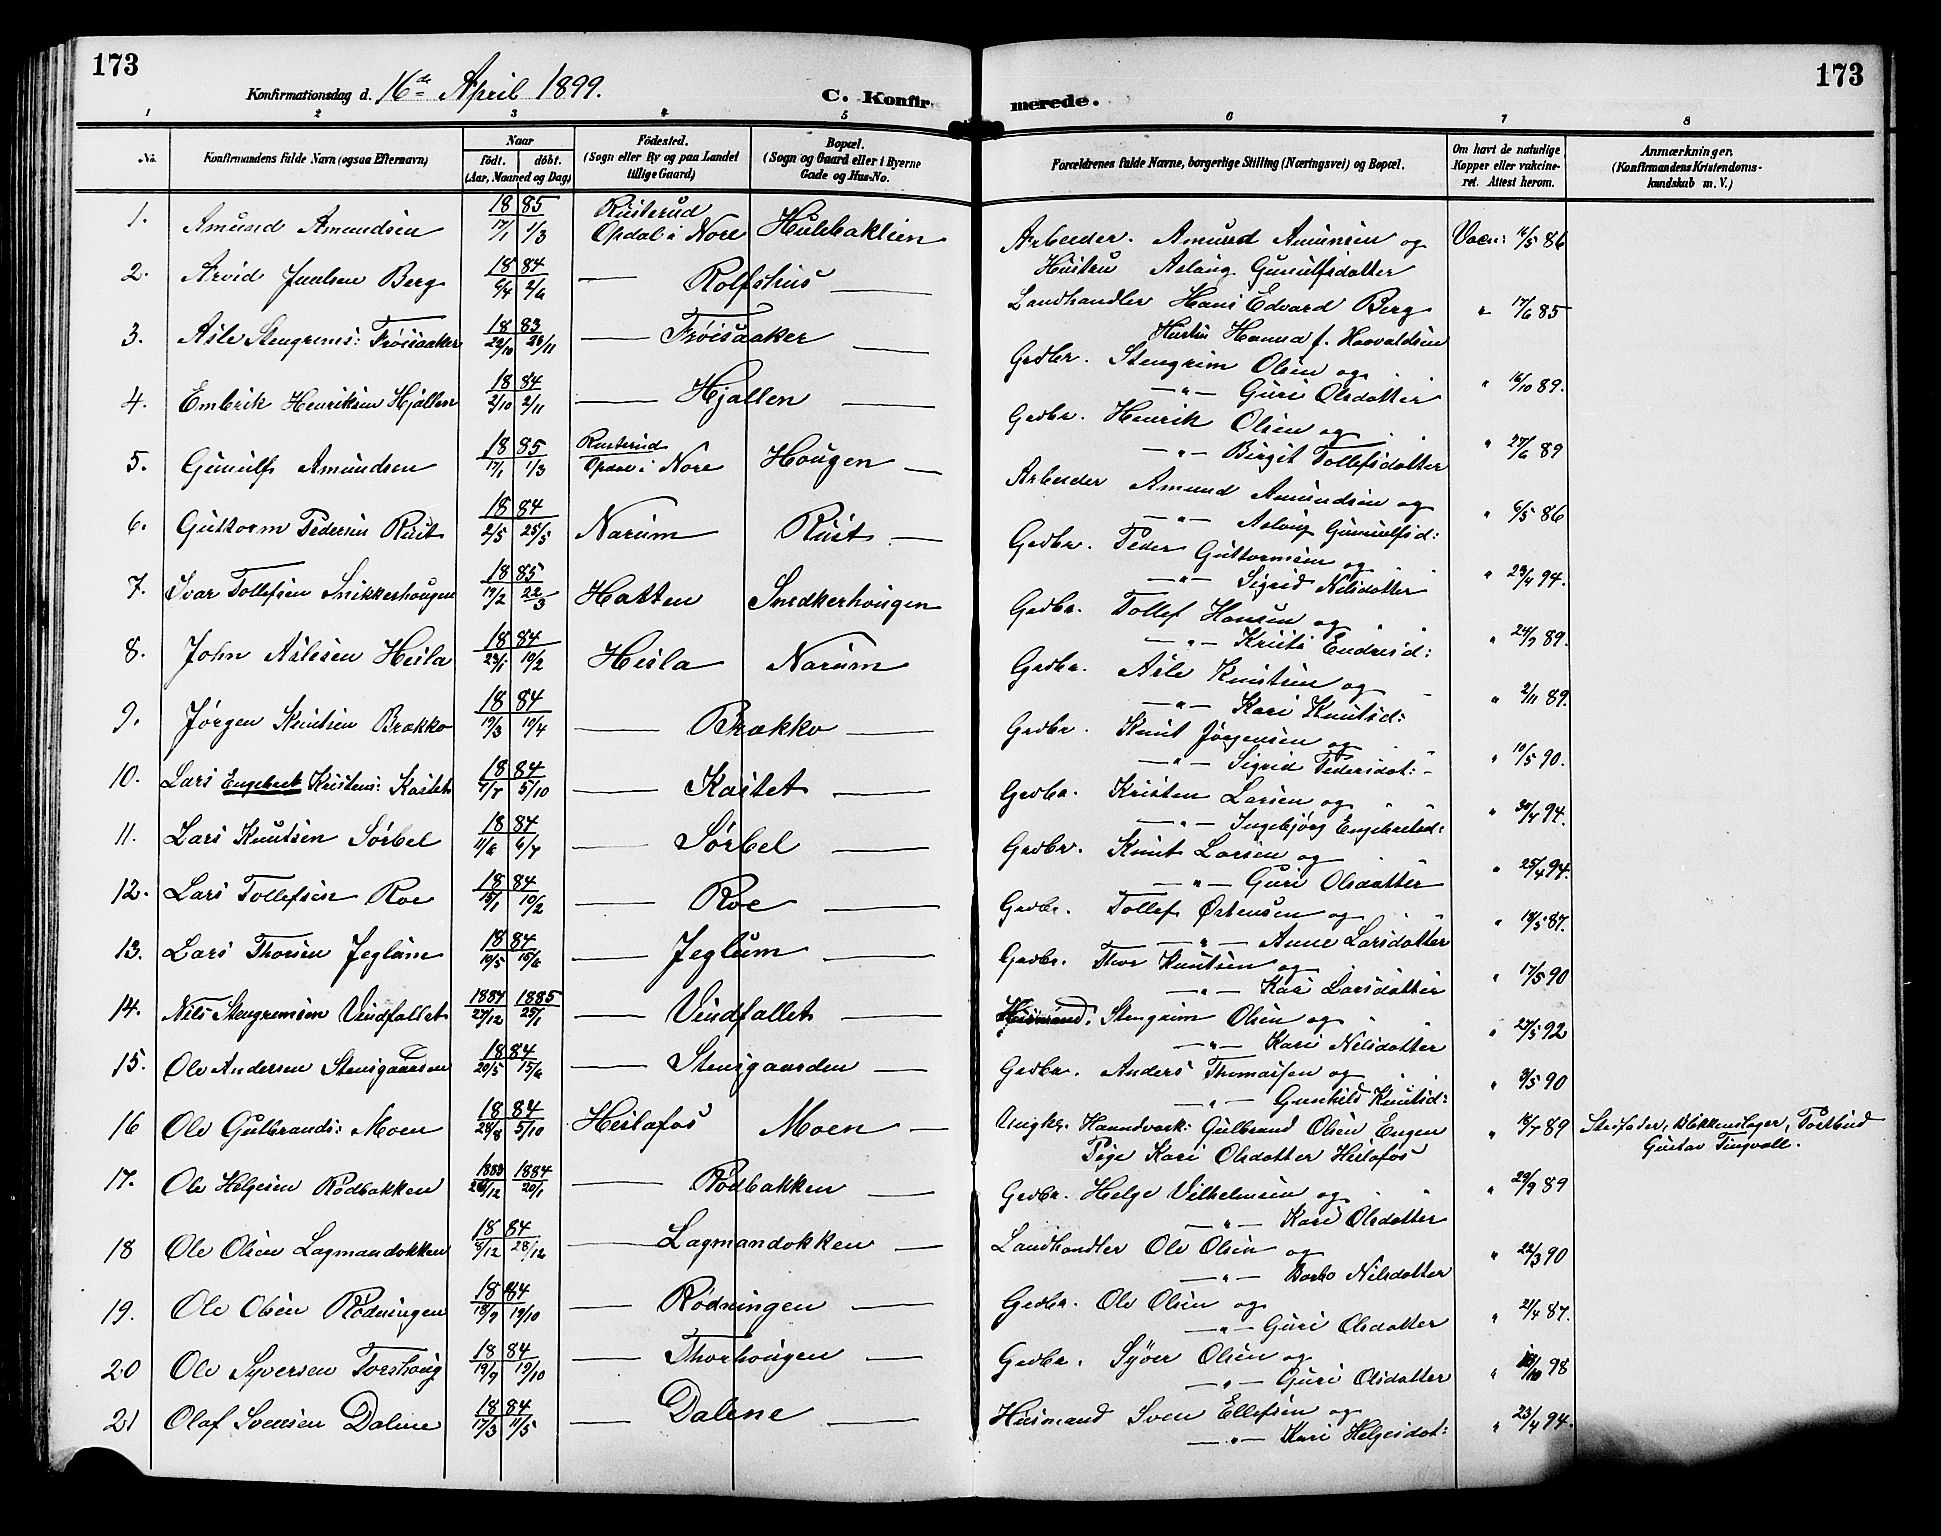 173
173
Konfirmationsdag d. 16de April 1899.
C. Konfirmerede.
1 2 3 4 5 6 7 8
No.
Konfirmandens fulde Navn (ogsaa Efternavn)
Naar
födt. döbt.
(Aar, Maaned og Dag)
Födested.
(Sogn eller By og paa Landet
tillige Gaard)
Bopæl.
(Sogn og Gaard eller i Byerne
Gade og Hus-No.
Forældrenes fulde Navne, borgerlige Stilling (Næringsvei) og Bopæl.
Om havt de naturlige
Kopper eller vakcine-
ret. Attest herom.
Anmærkninger.
(Konfirmandens Kristendoms-
kundskab m. V.)
1. Amund Amundsen 1885 17/1 1/3 Rusterud Opdal i Nore Hulebaklien Arbeider. Amund Amunsen og Vacc: 16/5 86
Hustru Aslaug Gunulfsdatter
2. Arvid Juulsen Berg 1884 6/4 2/6 — Rolfshus — Landhandler Hans Edvard Berg " 17/6 85
Hustru Hanna f. Haavaldsen
3. Asle Stengrims: Frøisaaker 1883 22/10 26/11 — Frøisaaker — Grdbr. Stengrim Olsen og " 16/10 89.
— " — Guri Olsdatter
4. Embrik Henriksen Hjallen 1884 2/10 2/11 — Hjallen — Grdbr. Henrik Olsen og " 27/6 89
— " — Birgit Tollefsdatter
5. Gunulf Amundsen 1885 17/1 1/3 Rusterud Opdal i Nore Hougen — Arbeider Amund Amundsen og " 6/5 86
— " — Aslaug Gunnulfsd:
6. Guttorm Pedersen Rust 1884 2/5 25/5 Narum Rust — Grdbr. Peder Guttormsen og " 23/4 94.
— " — Sigrid Nilsdatter
7. Ivar Tollefsen Snikkerhougen 1885 19/2 22/3 Hatten Snedkerhougen Grdbr. Tollef Hansen og " 24/9 89.
— " — Kristi Endresd:
8. John Aslesen Hesla 1884 24/1 10/2 Hesla Narum Grdbr. Asle Knutsen og " 2/11 89.
— " — Kari Knutsd:
9. Jørgen Knutsen Brækko 1884 19/3 19/4 — Brækko — Grdbr. Knut Jørgensen og " 10/5 90.
— " — Sigrid Pedersdat:
10. Lars Engebret Kristens: Kastet 1884 7/7 5/10 — Kastet — Grdbr. Kristen Larsen og " 30/4 94.
— " — Ingebjørg Engebretsd:
11. Lars Knutsen Sørbel 1884 11/6 6/7 — Sørbel — Grdbr. Knut Larsen og " 25/4 94.
— " — Guri Olsdatter
12. Lars Tollefsen Roe 1884 15/1 10/2 — Roe — Grdbr. Tollef Østensen og " 18/5 87.
— " — Anne Larsdatter
13. Lars Thorsen Jeglum 1884 19/5 15/6 — Jeglum — Grdbr. Thor Knutsen og " 17/5 90
— " — Kari Larsdatter
14. Nils Stengrimsen Vindfallet 1884 27/12 1885 25/1 — Vindfallet — Husmand. Stengrim Olsen og " 27/5 92
— " — Kari Nilsdatter
15. Ole Andersen Stensgaarden 1884 20/5 15/6 — Stensgaarden — Grdbr. Anders Thomassen og " 9/5 90
— " — Gunhild Knutsd:
16 Ole Gulbrands: Moen 1884 28/8 5/10 Heslafos Moen — Ungkr. Haandverk: Gulbrand Olsen Engen " 18/7 89 Stedfader, Blikkenslager, Torbind
Pige Kari Olsdatter Heslafos Gustav Tingvall.
17. Ole Helgesen Rödbakken 1883 26/12 1884 20/1 — Rödbakken — Grdbr. Helge Vilhelmsen og " 29/9 89
— " — Kari Olsdatter
18 Ole Olsen Lagmandokken 1884 8/12 28/12 — Lagmandokken — Landhandler Ole Olsen og " 22/3 90
— " — Barbo Nilsdatter
19. Ole Olsen Rödningen 1884 18/9 19/10 — Rödningen — Grdbr. Ole Olsen og " 21/4 87.
— " — Guri Olsdatter
20 Ole Syversen Torshoug 1884 19/9 19/10 — Thorhougen — Grdbr. Syver Olsen og " 18/10 98
— " — Guri Olsdatter
21 Olaf Svensen Dalene 1884 17/3 11/5 — Dalene — Husmand Sven Ellefsen og " 23/4 94.
— " — Kari Helgesdat: